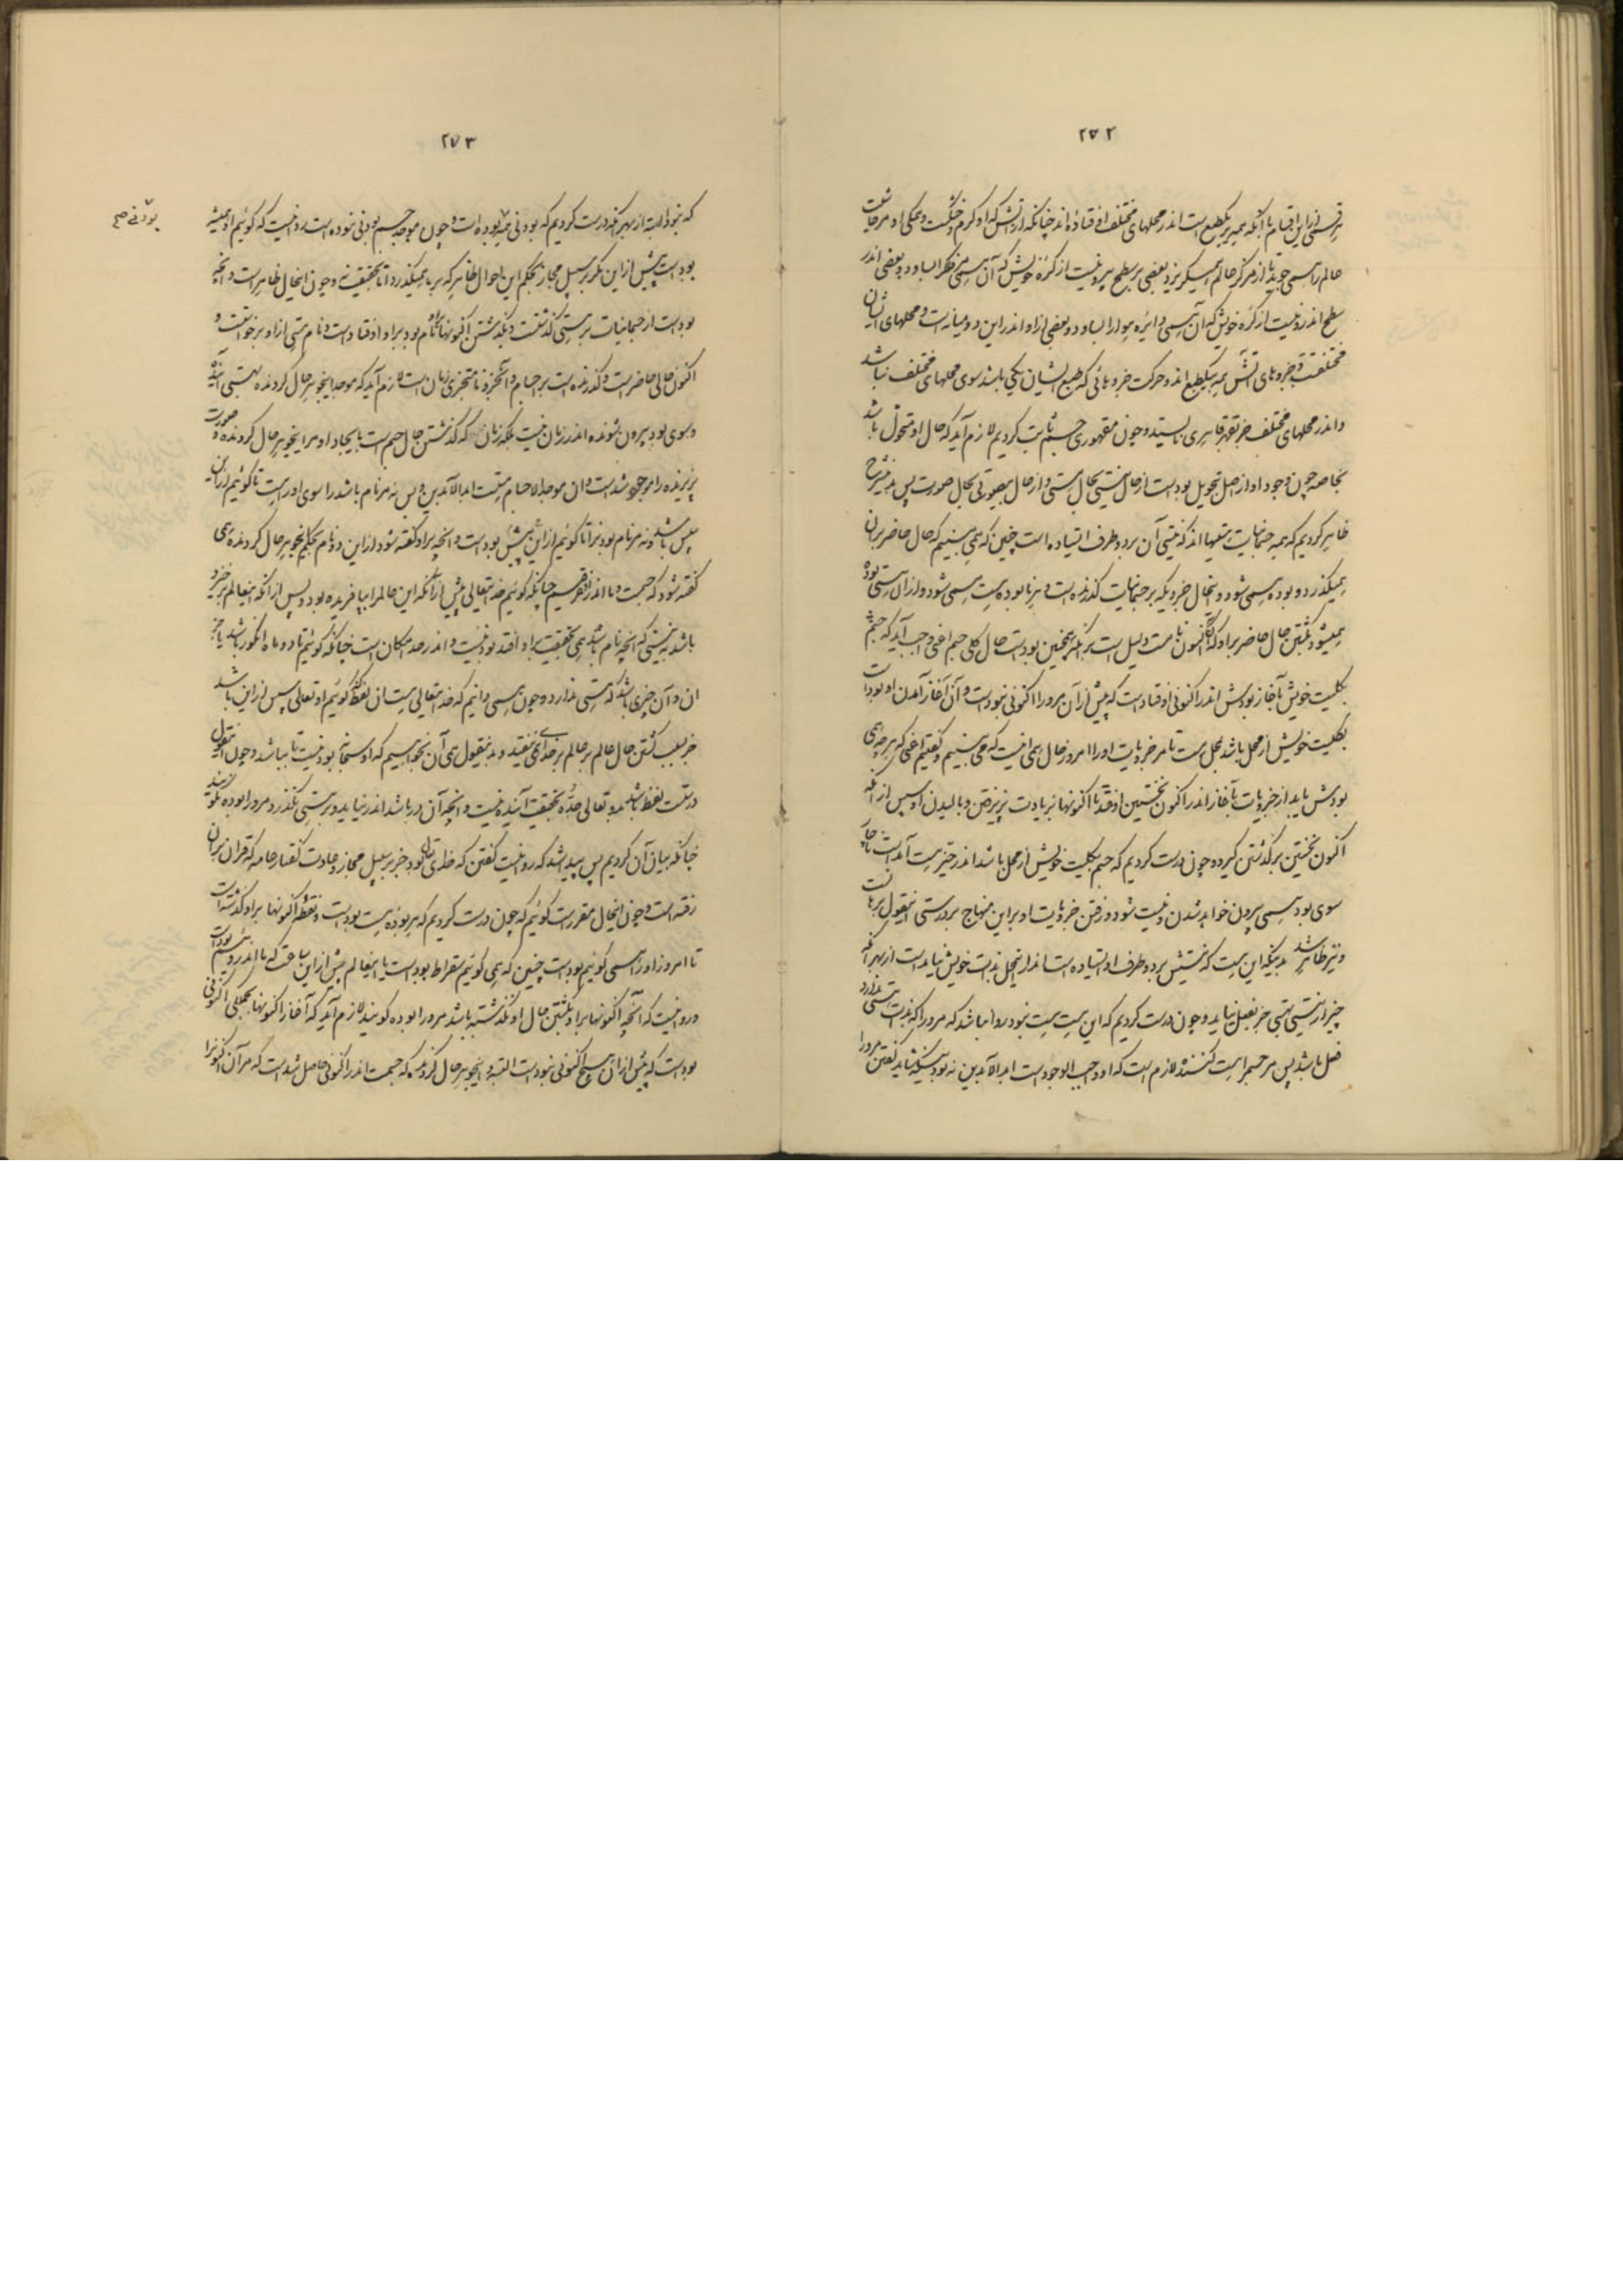 ۲۷۲
هر قسمی از این اقسام با آنکه همه بر یک طبع است اندر محلهای مختلف افتاده‌اند چنانکه از آتش که او گرم و خشکست و همگی او مر حاشیت
عالم را همی جوید تا از مرکز عالم همیگریزد بعضی بر سطح بیرونیست از کره خویش که آن همی فلک را بساود و بعضی اندر
سطح اندرونیست از کره خویش که آن همی دایره هوا را بساود و بعضی از او اندر این دو میانه است و محلهای ایشان
مختلفست و جزوهای آتش همه بیک طبع‌اند و حرکت جزوهائی که طبع ایشان یکی باشد سوی محلهای مختلف نباشد
و اندر محلهای مختلف جز بقهر قاهری نایستد و چون مقهوری جسم ثابت کردیم لازم آید که حال او متحول باشد
بخاصه چون وجود او از اصل تحویل بودست از حال نیستی بحال هستی و از حال بیصورتی بحال صورت پس بدین شرح
ظاهر کردیم که همه جسمانیات متنهااند که نیستی آن بر دو طرف ایستاده است چنین که همی بینیم که حال حاضر بر آن
همیگذرد و بوده همی شود و حال جزو یکه بر جسمانیات گذرنده است و هر نابوده هست همی شود و از آن هستی بوده
همیشود بگشتن حال حاضر بر او که اکنون نام اوست دلیل است بر آنکه همچنین بودست حال کلی جسم اعنی واجب آید که جسم
بکلیت خویش بآغاز بودش اندر اکنونی اوفتادست که پیش از آن مرورا اکنونی نبودست و آن آغاز آمدن او بودست
بکلیت خویش از محل باشد بمحل هست تا مر جزویات او را امروز حال همی اینست که می بینیم و گفتیم اعنی که هر چه همی
بودش یابد از جزویات بآغاز اندر اکنون نخستین اوفتد تا اکنونها بزیادت پذیرفتن و بالیدن او سپس از آنکه
اکنون نخستین بر گذشتن گیرد و چون درست کردیم که جسم بکلیت خویش از محل باشد اندر حیز هست آمدست ناچار
سوی بود همی بیرون خواهد شدن و نیست شود و رفتن جزویات او بر این منهاج بر درستی این قول برهانست
و نیز ظاهر شد بدانچه این هست که نیستش بر دو طرف او ایستاده است اندر این محل بذات خویش نیامدست از بهر آنکه
چیز از نیستی بهستی جز بفعل نیاید و چون درست کردیم که این هست هست نبود روا نباشد که مرورا که بذات هستی ندارد
فعل باشد پس مر جسم را هست کننده لازم است که او واجب الوجودست ابد الآبدین نه بود نیست شاید گفتن مرورا
۲۷۳
که نبود البته از بهر آنکه درست کردیم که بودنی همه بوده است و چون موجد جسم بودنی نبوده است روا نیست که گوئیم او همیشه
بودست پیش از این مگر بر سبیل مجاز بحکم این احوال ظاهر که بر ما همیگذرد تا بحقیقت نه و چون اینحال ظاهر است و آنچه
بودست از جسمانیات بر هستی گذشتست و بگذشتن اکنونها نام بود بر او اوفتادست و نام هستی از او برخواست و
اکنون حالی حاضرست و گذرنده است بر اجسام و آن جزو نامتجزی زمان است لازم آید که موجد این جوهر حال گردنده بهستی آینده
و سوی بود بیرون شونده اندر زمان نیست بلکه زمان که گذشتن حال جسم است بایجاد او مر این جوهر حال گردنده و صورت
پذیرنده را موجود شدست و آن موجد الاجسام هست ابد الآبدین و بس نه مر نام باشد را سوی او راهست تا گوئیم از این
سپس باشد و نه مر نام بود را تا گوئیم از این پیش بودست و آنچه بر او گفته شود از این دو نام بحکم این جوهر حال گردنده همی
گفته شود که جسمست و ما اندر او غرقیم چنانکه گوئیم خدایتعالی پیش از آنکه این عالم را بیافریده بود و پس از آنکه اینعالم برخیزد
باشد نه بینی که آنچه نام باشد همی بحقیقت بر او افتد بود نیست و اندر حد امکان است چنانکه گوئیم تا دو ماه انگور باشد یا جز
آن و آن چیزی باشد که هستی ندارد و چون همی دانیم که خدایتعالی هست از لفظ که گوئیم او تعالی سپس از این باشد
جز بسبب گشتن حال عالم بر عالم بر خدای نیفتد و بدین قول همی آن نخواهیم که او سبحانه بود نیست تا بباشد و چون این قول
درست لفظ باشد بدو تعالی جده بحقیقت آینده نیست و آنچه آن در باشد اندر نیاید و بر هستی نگذرد مرورا بوده نگویند
چنانکه بیان آن کردیم پس پیدا شد که روا نیست گفتن که خدای تعالی بود جز بر سبیل مجاز و عادت گفتار عامه که قرآن بر آن
رفته است و چون اینحال مقررست گوئیم که چون درست کردیم که هر بوده هست بودست و نقطه اکنونها بر او گذشته است
تا امروز او را همی گوئیم بودست چنین که همی گوئیم سقراط بودست یا اینعالم پیش از این ساعت که ما اندر وئیم بودست
و روا نیست که آنچه اکنونها بر او بگشتن حال او نگذشته باشد مرورا بوده گویند لازم آید که آغاز اکنونها بجملگی اکنونی
بودست که پیش از آن هیچ اکنونی نبودست البته و این جوهر حال گردنده که جسمست اندر اکنونی حاصل شدست که مر آن اکنون را
بودنی صح